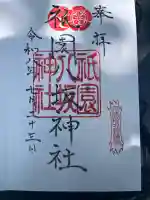 奉拝
祇園
八坂神社
令和六年七月二十三日
祇園
八坂
神社